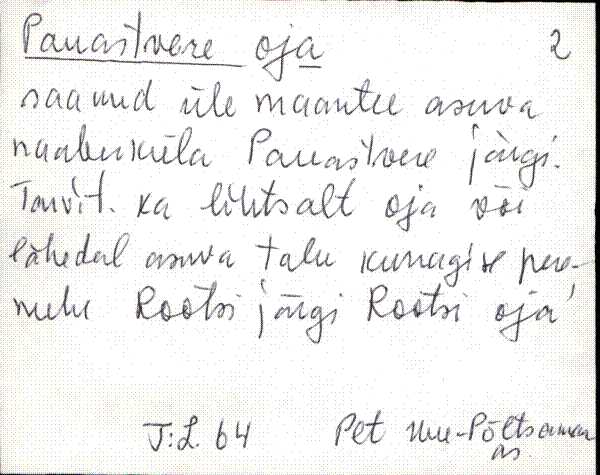 Panastvere oja 2
saanud üle maantee asuva
naaberküla Panastvere järgi.
Tarvit. ka lihtsalt oja või
lähedal asuva talu kunagise pere-
mehe Rootsi järgi Rootsi oja
J:L. 64 Plt Uue-Põltsamaa
as.